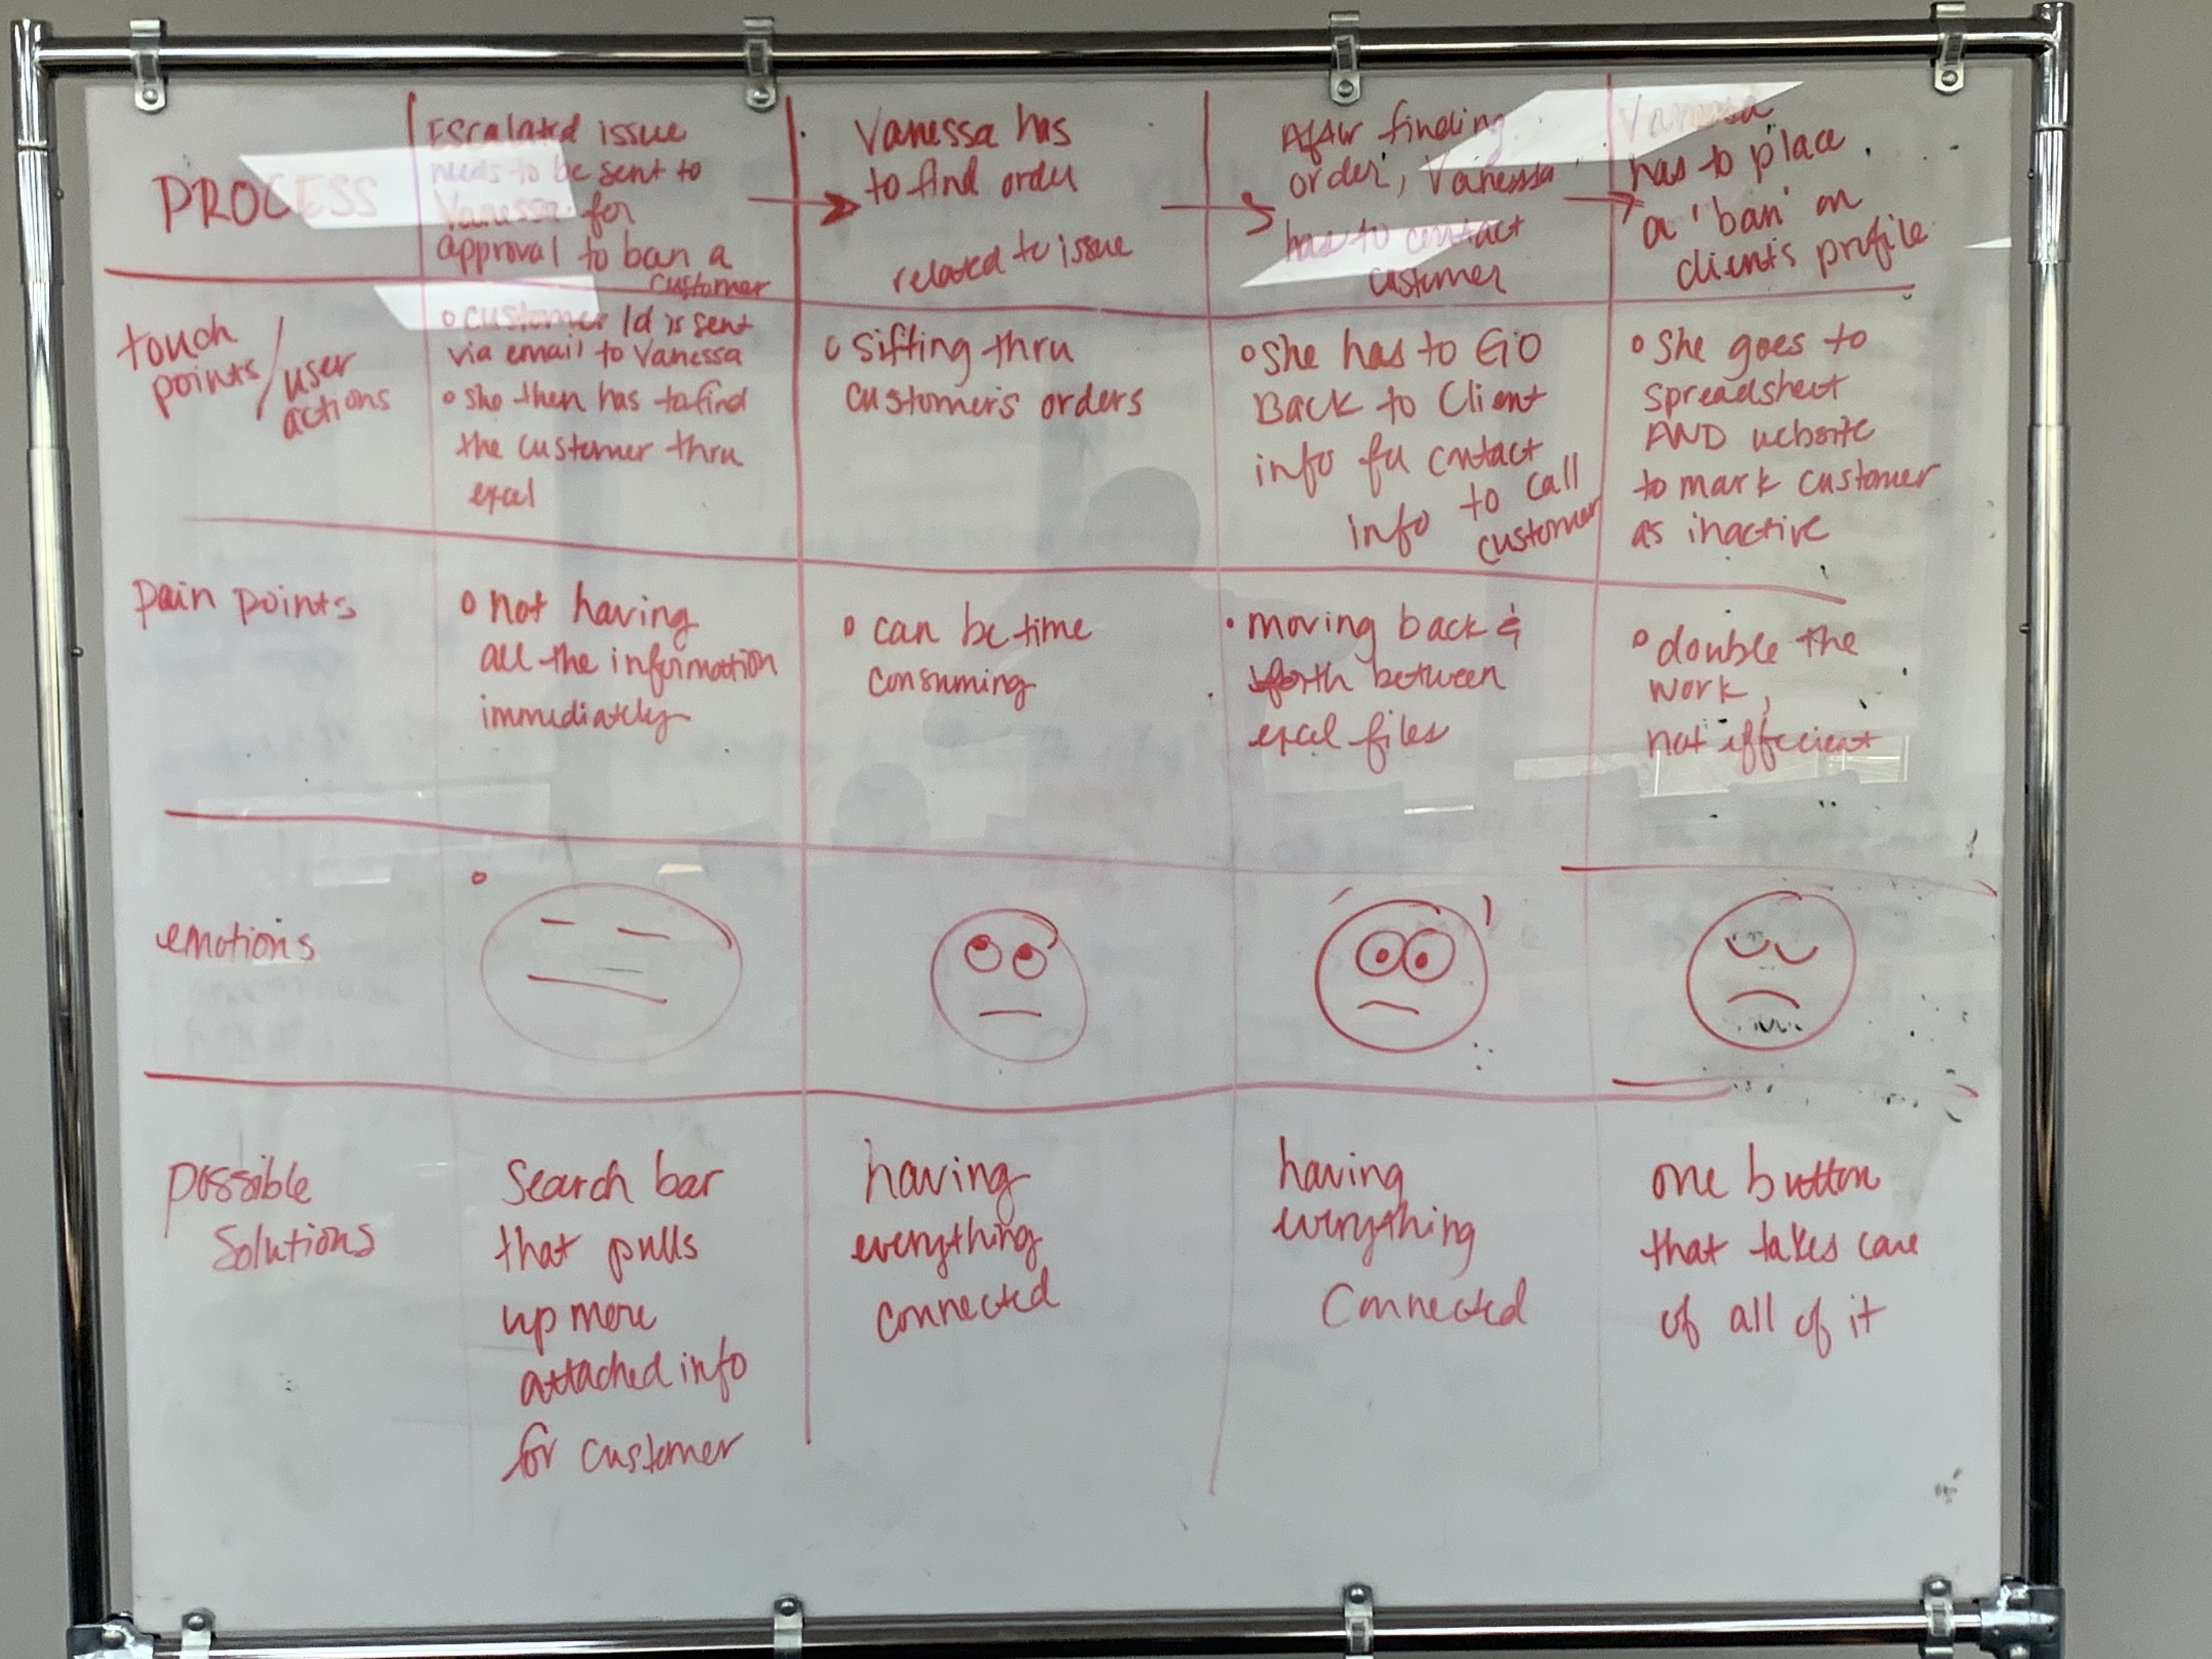 PROCESS
Escalated issue
needs to be sent to
Vanessa for
approval to ban a
customer
Vanessa has
to find order
related to issue
After finding
order, Vanessa
has to contact
customer
Vanessa
has to place
a 'ban' on
client's profile
touch
points/user
actions
customer Id is sent
via email to Vanessa
she then has to find
the customer thru
excel
Sifting thru
customer's orders
She has to GO
Back to Client
info for contact
info to call
customer
She goes to
spreadsheet
AND website
to mark customer
as inactive
pain points
not having
all the information
immediately
can be time
consuming
moving back &
forth between
excel files
double the
work,
not effecient
emotions
possible
solutions
Search bar
that pulls
up more
attached info
for customer
having
everything
connected
having
everything
Connected
one button
that takes care
of all of it